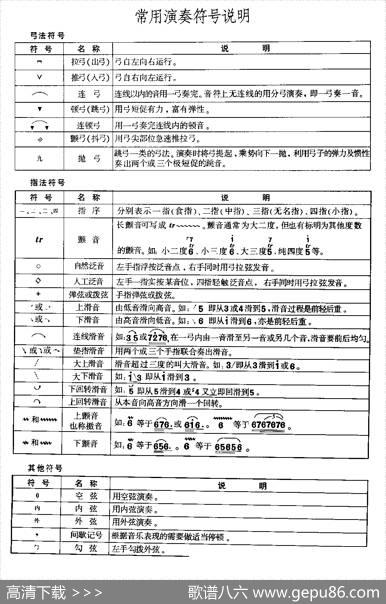 常用演奏符号说明
弓法符号
符号 名称 说明
拉弓(出弓) 弓自左向右运行。
∨ 推弓(入弓) 弓自右向左运行。
连弓 连线以内的音用一弓奏完。音符上无连线的用分弓演奏,即一弓奏一音。
▼ 顿弓(跳弓) 用弓短促有力,富有弹性。
连顿弓 用一弓奏完连线内的顿音。
颤弓(抖弓) 用弓尖部位急速推拉弓。
抛弓 跳弓一类的弓法。演奏时将弓提起,乘势向下一抛,利用弓子的弹力及惯性
奏出两个或三个极短促的跳音。
指法符号
符号 名称 说明
一、二、三、四 指序 分别表示一指(食指)、二指(中指)、三指(无名指)、四指(小指)。
tr 颤音 长颤音可写成 tr~~~~。颤音通常为大二度,但也有标明为其他度数
的颤音。如,小二度6、小三度6、大三度5、纯四度5等。
○ 自然泛音 左手指浮按泛音点,右手同时用弓拉弦发音。
◇ 人工泛音 左手一指实按某音位,四指轻触泛音点,右手同时用弓拉弦发音。
弹弦或拨弦 手指弹弦或拨弦。
或 上滑音 由低音滑向高音。如:5 即从3或4滑到5,滑音过程是前轻后重。
或 下滑音 由高音滑向低音。如:6 即从i滑到6,亦是前轻后重。
连线滑音 如:35或7276,在一弓内由一音滑至另一音或另几个音,滑音要前后均匀。
或 或 垫指滑音 用两个或三个手指联合奏出滑音。
大上滑音 滑音超过三度的叫大滑音。如,3/即从3滑到i或6。
大下滑音 如:i\3 即从i滑到3。
下回转滑音 如:5即从5滑到4 或#4又立即回滑到5。
上回转滑音 从本音向高音方向滑一个回转。
和 上颤音
也称撒音 如:6 等于676.或616.。6 等于6767676。
和 下颤音 如:6 等于656.。6 等于65656。
其他符号
符号 名称 说明
0 空弦 用空弦演奏。
内 内弦 用内弦演奏。
外 外弦 用外弦演奏。
间歇记号 根据音乐表现的需要做适当停顿。
勾弦 左手勾拨外弦。
高清下载 >>> 歌谱八六 www.gepu86.com